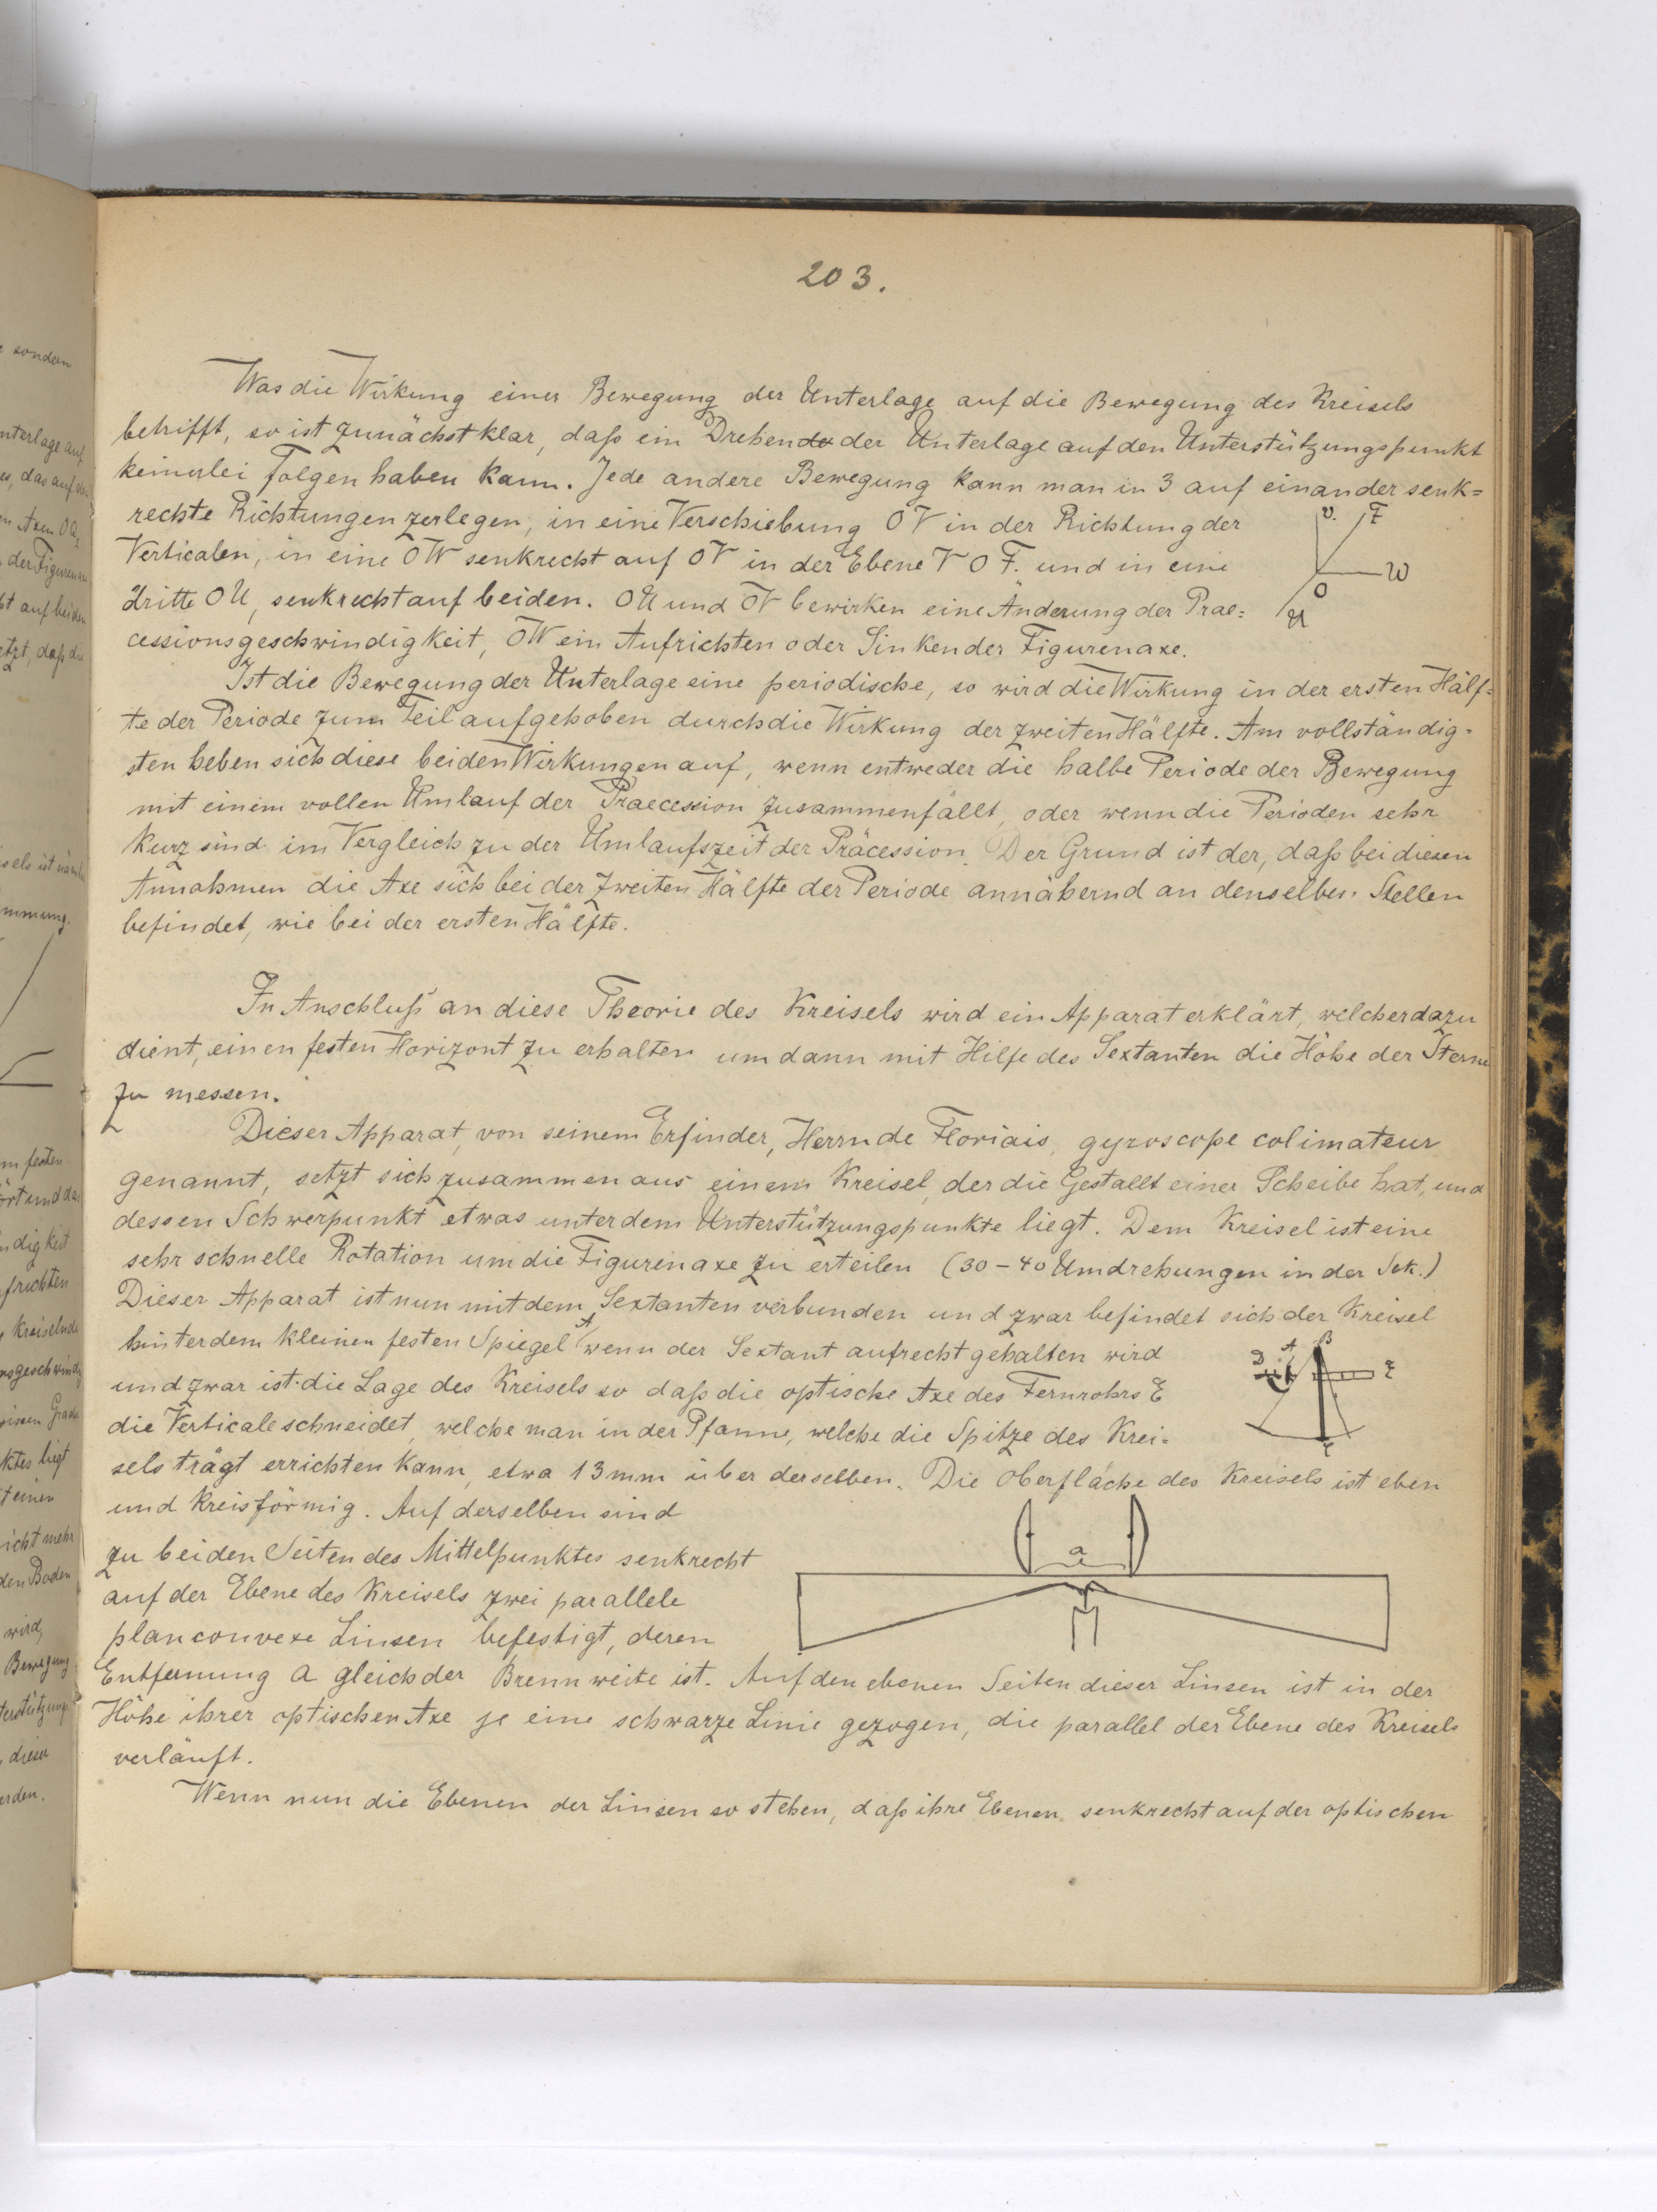 203.
Was die Wirkung einer Bewegung der Unterlage auf die Bewegung des Kreisels
betrifft, so ist zunächst klar, daß ein Drehen der Unterlage auf den Unterstützungspunkt
keinerlei Folgen haben kann. Jede andere Bewegung kann man in 3 auf einander senk=
rechte Richtungen zerlegen, in eine Verschiebung OV in der Richtung der
Verticalen, in eine OW senkrecht auf OV in der Ebene V O F. und in eine
dritte OU, senkrecht auf beiden. OU und OV bewirken eine Änderung der Prae=
cessionsgeschwindigkeit, OW ein Aufrichten oder Sinken der Figurenaxe.
v. F
W
O
U
Ist die Bewegung der Unterlage eine periodische, so wird die Wirkung in der ersten Hälf=
te der Periode zum Teil aufgehoben durch die Wirkung der zweiten Hälfte. Am vollständig=
sten heben sich diese beiden Wirkungen auf, wenn entweder die halbe Periode der Bewegung
mit einem vollen Umlauf der Praecession zusammenfällt, oder wenn die Perioden sehr
kurz sind im Vergleich zu der Umlaufszeit der Präcession. Der Grund ist der, daß bei diesen
Annahmen die Axe sich bei der zweiten Hälfte der Periode annähernd an denselben Stellen
befindet, wie bei der ersten Hälfte.
In Anschluß an diese Theorie des Kreisels wird ein Apparat erklärt, welcher dazu
dient, einen festen Horizont zu erhalten um dann mit Hilfe des Sextanten die Höhe der Sterne
zu messen.
Dieser Apparat, von seinem Erfinder, Herrn de Floriais, gyroscope colimateur
genannt, setzt sich zusammen aus einem Kreisel, der die Gestallt einer Scheibe hat, und
dessen Schwerpunkt etwas unter dem Unterstützungspunkte liegt. Dem Kreisel ist eine
sehr schnelle Rotation um die Figurenaxe zu erteilen (30 - 40 Umdrehungen in der Sek.)
Dieser Apparat ist nun mit dem Sextanten verbunden und zwar befindet sich der Kreisel
hinter dem kleinen festen Spiegel A, wenn der Sextant aufrecht gehalten wird
und zwar ist die Lage des Kreisels so daß die optische Axe des Fernrohrs E
die Verticale schneidet, welche man in der Pfanne, welche die Spitze des Krei=
sels trägt errichten kann, etwa 13 mm über derselben. Die Oberfläche des Kreisels ist eben
D A B E
C
und kreisförmig. Auf derselben sind
zu beiden Seiten des Mittelpunktes senkrecht
auf der Ebene des Kreisels zwei parallele
planconvexe Linsen befestigt, deren
a
Entfernung a gleich der Brennweite ist. Auf den ebenen Seiten dieser Linsen ist in der
Höhe ihrer optischen Axe je eine schwarze Linie gezogen, die parallel der Ebene des Kreisels
verläuft.
Wenn nun die Ebenen der Linsen so stehen, daß ihre Ebenen senkrecht auf der optischen